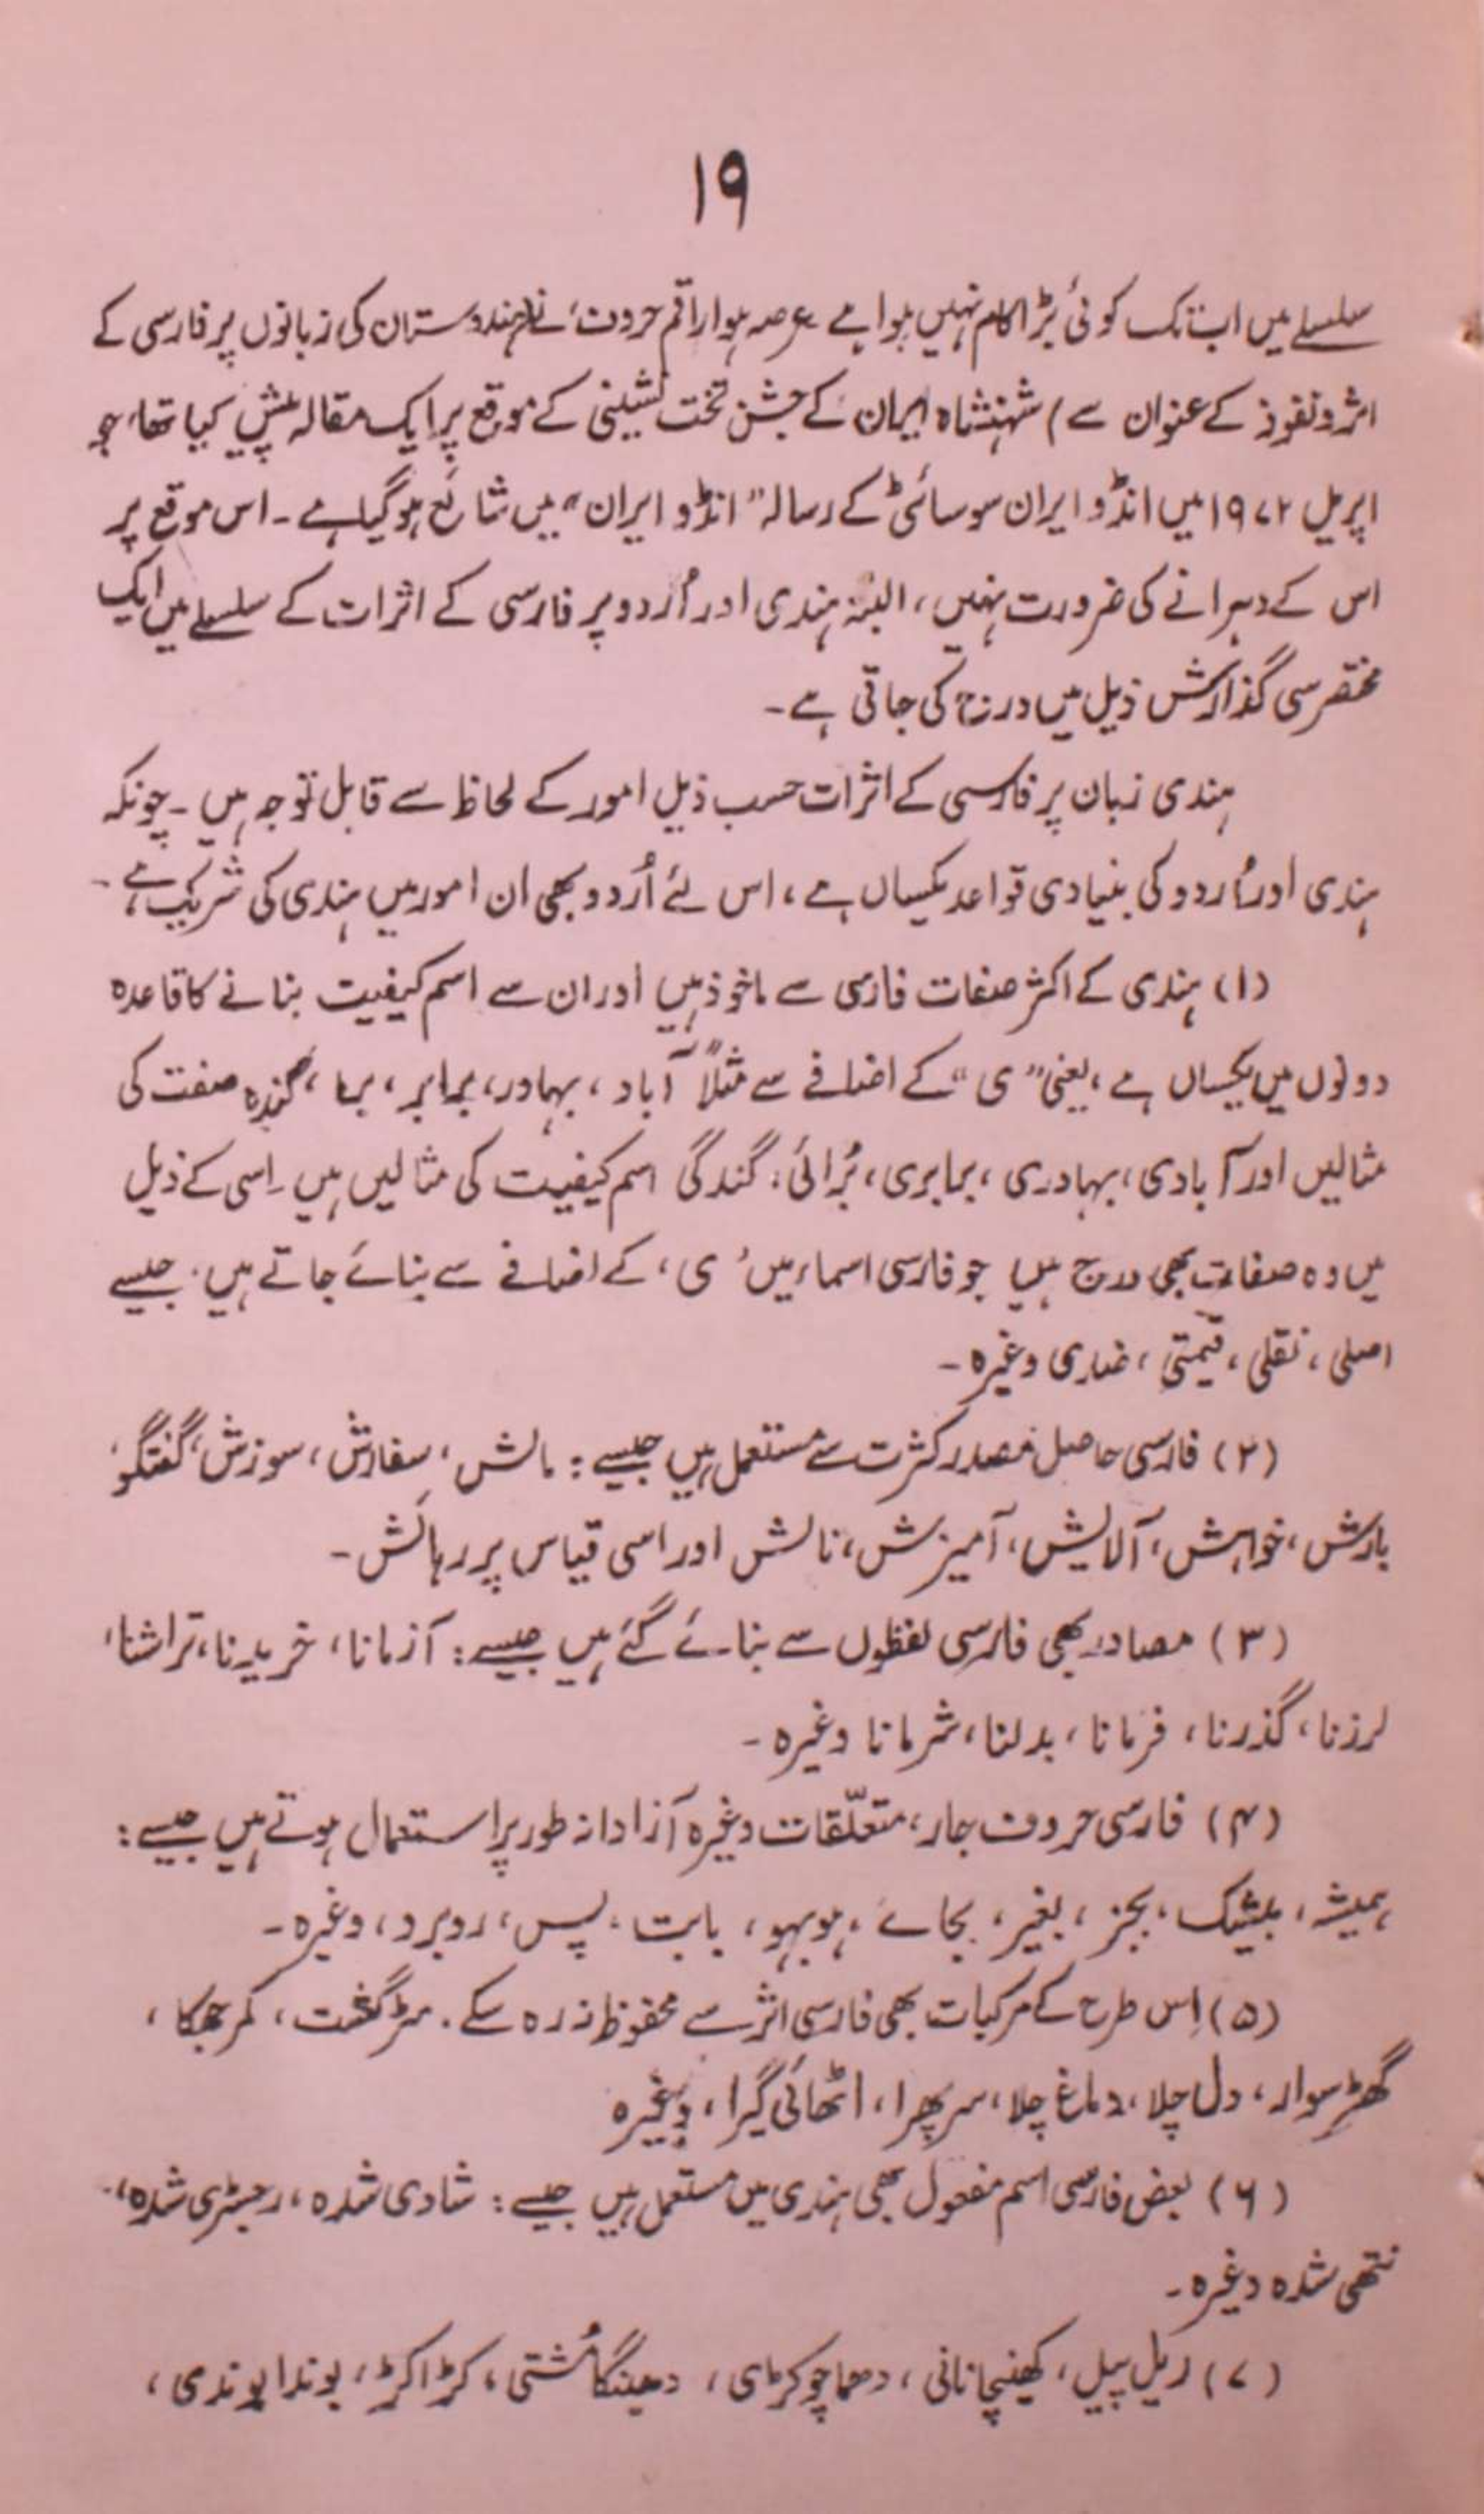 ۱۹
سلسلے میں اب تک کوئی بڑا کام نہیں ہوا ہے عرصہ ہوا راقم حروف نے (ہندوستان کی زبانوں پر فارسی کے
اثر و نفوذ کے عنوان سے) شہنشاہ ایران کے جشن تخت نشینی کے موقع پر ایک مقالہ پیش کیا تھا، جو
اپریل ۱۹۷۲ میں انڈو ایران سوسائٹی کے رسالہ "انڈو ایران" میں شائع ہوگیا ہے۔ اس موقع پر
اس کے دہرانے کی ضرورت نہیں، البتہ ہندی اور اُردو پر فارسی کے اثرات کے سلسلے میں ایک
مختصر سی گذارش ذیل میں درج کی جاتی ہے۔
ہندی زبان پر فارسی کے اثرات حسب ذیل امور کے لحاظ سے قابل توجہ ہیں۔ چونکہ
ہندی اور اُردو کی بنیادی قواعد یکساں ہے، اس لئے اُردو بھی ان امور میں ہندی کی شریک ہے۔
(۱) ہندی کے اکثر صفات فارسی سے ماخوذ ہیں اور ان سے اسم کیفیت بنانے کا قاعدہ
دونوں میں یکساں ہے، یعنی "ی" کے اضافے سے مثلاً آباد، بہادر، برابر، برا، گندہ صفت کی
مثالیں اور آبادی، بہادری، برابری، بُرائی، گندگی اسم کیفیت کی مثالیں ہیں۔ اِسی کے ذیل
میں وہ صفات بھی درج ہیں جو فارسی اسماء میں 'ی' کے اضافے سے بنائے جاتے ہیں، جیسے
اصلی، نقلی، قیمتی، وغیرہ۔
(۲) فارسی حاصل مصدر کثرت سے مستعمل ہیں جیسے: مالش، سفارش، سوزش، گفتگو،
بارش، خواہش، آلایش، آمیزش، نالش اور اسی قیاس پر رہائش۔
(۳) مصادر بھی فارسی لفظوں سے بنائے گئے ہیں جیسے: آزمانا، خریدنا، تراشنا،
لرزنا، گذرنا، فرمانا، بدلنا، شرمانا وغیرہ۔
(۴) فارسی حروف جار، متعلّقات وغیرہ آزادانہ طور پر استعمال ہوتے ہیں جیسے:
ہمیشہ، بیشک، بجز، بغیر، بجائے، ہوبہو، بابت، پس، روبرو، وغیرہ۔
(۵) اِس طرح کے مرکبات بھی فارسی اثر سے محفوظ نہ رہ سکے۔ مٹرگشت، کمر جھکا،
گھڑسوار، دل چلا، دماغ چلا، سر پھرا، اٹھائی گیرا، وغیرہ
(۶) بعض فارسی اسم مفعول بھی ہندی میں مستعمل ہیں جیسے: شادی شدہ، رجسٹری شدہ،
نتھی شدہ وغیرہ۔
(۷) ریل پیل، کھینچا تانی، دھما چوکڑی، دھینگا مُشتی، کڑاکڑ، بوندا بوندی،